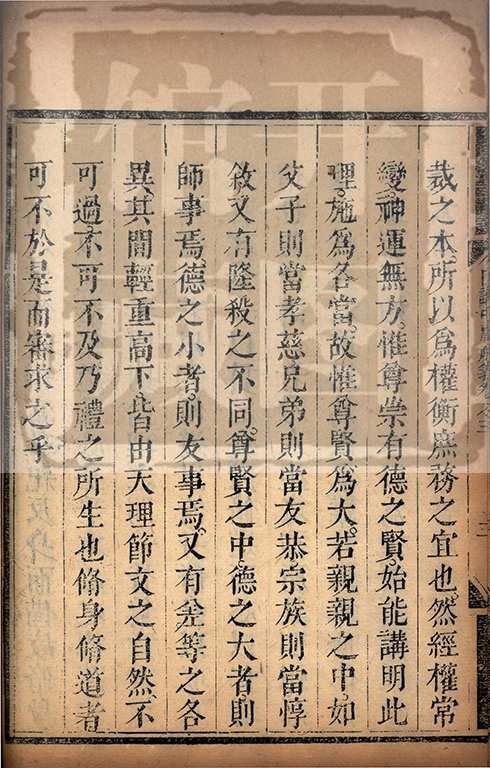 裁之本所以為權衡庶務之宜也然經權常
變神運無方惟尊崇有德之賢始能講明此
理施為各當故惟尊賢為大若親親之中如
父子則當孝慈兄弟則當友恭宗族則當惇
敘又有隆殺之不同尊賢之中德之大者則
師事焉德之小者則友事焉又有差等之各
異其間輕重高下皆由天理節文之自然不
可過不可不及乃禮之所生也脩身脩道者
可不於是而審求之乎